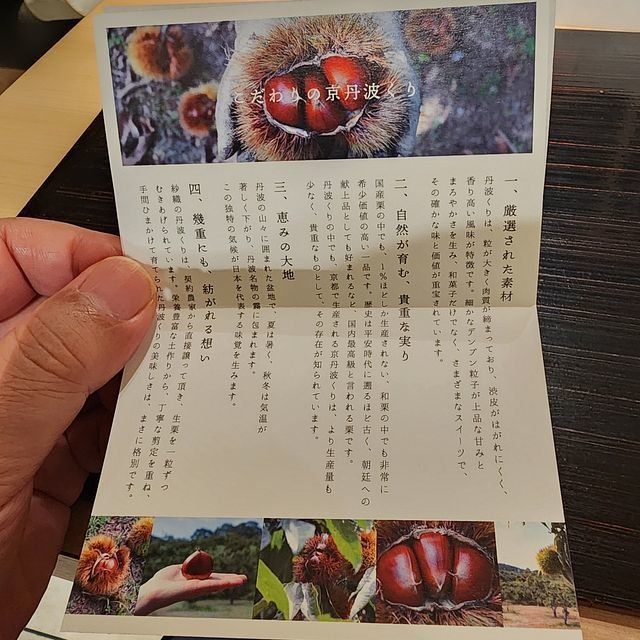 こだわりの京丹波くり
一、厳選された素材
丹波くりは、粒が大きく肉質が締まっており、渋皮がはがれにくく、
香り高い風味が特徴です。細かなデンプン粒子が上品な甘みと
まろやかさを生み、和菓子だけでなく、さまざまなスイーツで、
その確かな味と価値が重宝されています。
二、自然が育む、貴重な実り
国産栗の中でも、1％ほどしか生産されない、和栗の中でも非常に
希少価値の高い一品です。歴史は平安時代に遡るほど古く、朝廷への
献上品としても好まれるなど、国内最高級と言われる栗です。
丹波くりの中でも、京都で生産される京丹波くりは、より生産量も
少なく、貴重なものとして、その存在が知られています。
三、恵みの大地
丹波の山々に囲まれた盆地で、夏は暑く、秋冬は気温が
著しく下がり、丹波名物の霧に包まれます。
この独特の気候が日本を代表する味覚を生みます。
四、幾重にも、紡がれる想い
紗織の丹波くりは、契約農家から直接譲って頂き、生栗を一粒ずつ
むきあげられています。栄養豊富な土作りから、丁寧な剪定を重ね、
手間ひまかけて育てられた丹波くりの美味しさは、まさに格別です。